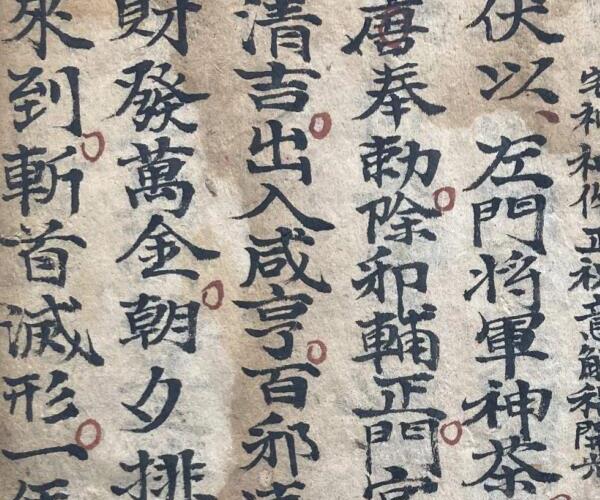 神正意解神開光
伏以左門將軍神荼
唐奉勅除邪輔正門官
清吉出入咸亨百邪
財發萬金朝夕排
來到斬首滅形一